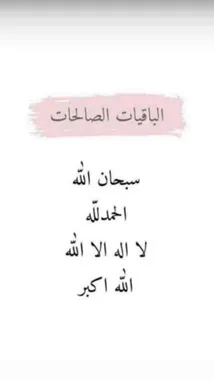 الباقيات الصالحات
سبحان الله
الحمدلله
لا اله الا الله
الله اكبر